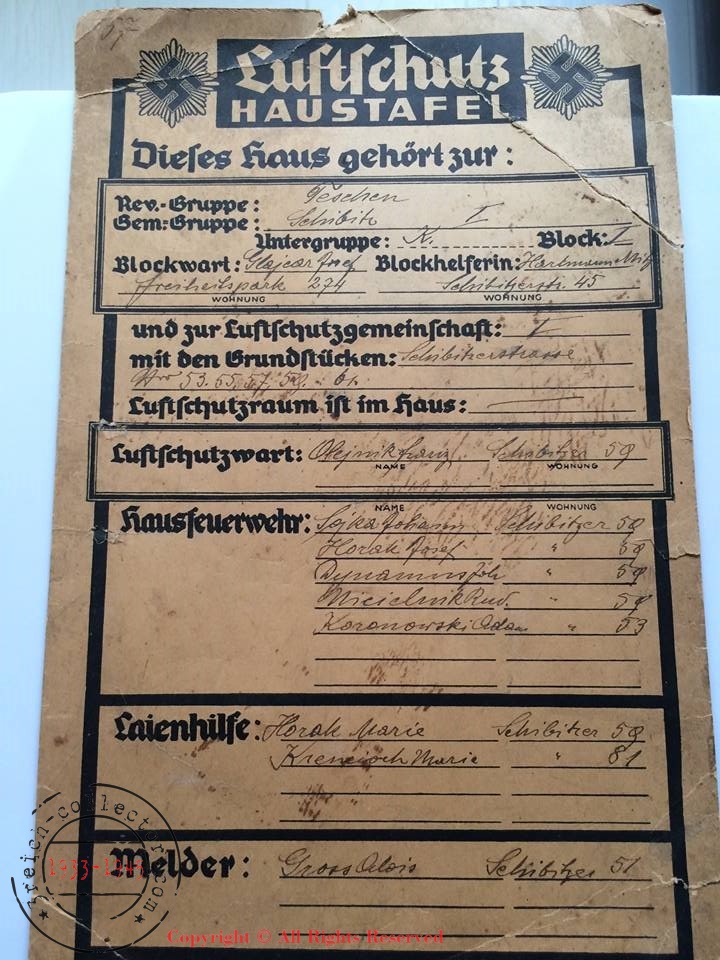 Luftschutz
HAUSTAFEL
Dieses Haus gehört zur:
Rev.-Gruppe: Teschen
Gem.-Gruppe: Schibitz I
Untergruppe: K. Block: I
Blockwart: Glajcar Josef Blockhelferin: Hartmann
Freiheitspark 274 Schibitzerstr. 45
WOHNUNG WOHNUNG
und zur Luftschutzgemeinschaft: I
mit den Grundstücken: Schibitzerstrasse
Nr 53. 55. 57. 59. 61.
Luftschutzraum ist im Haus:
Luftschutzwart: Olejnik Franz Schibitzer 59
NAME WOHNUNG
NAME WOHNUNG
Hausfeuerwehr: Sojka Johann Schibitzer 59
Horak Josef " 59
Joh. " 59
Rud. " 59
Koronowski Adam " 53
Laienhilfe: Horak Marie Schibitzer 59
Marie " 61
Melder: Gross Alois Schibitzer 51
3reich-collector.com
1933-1945
Copyright © All Rights Reserved